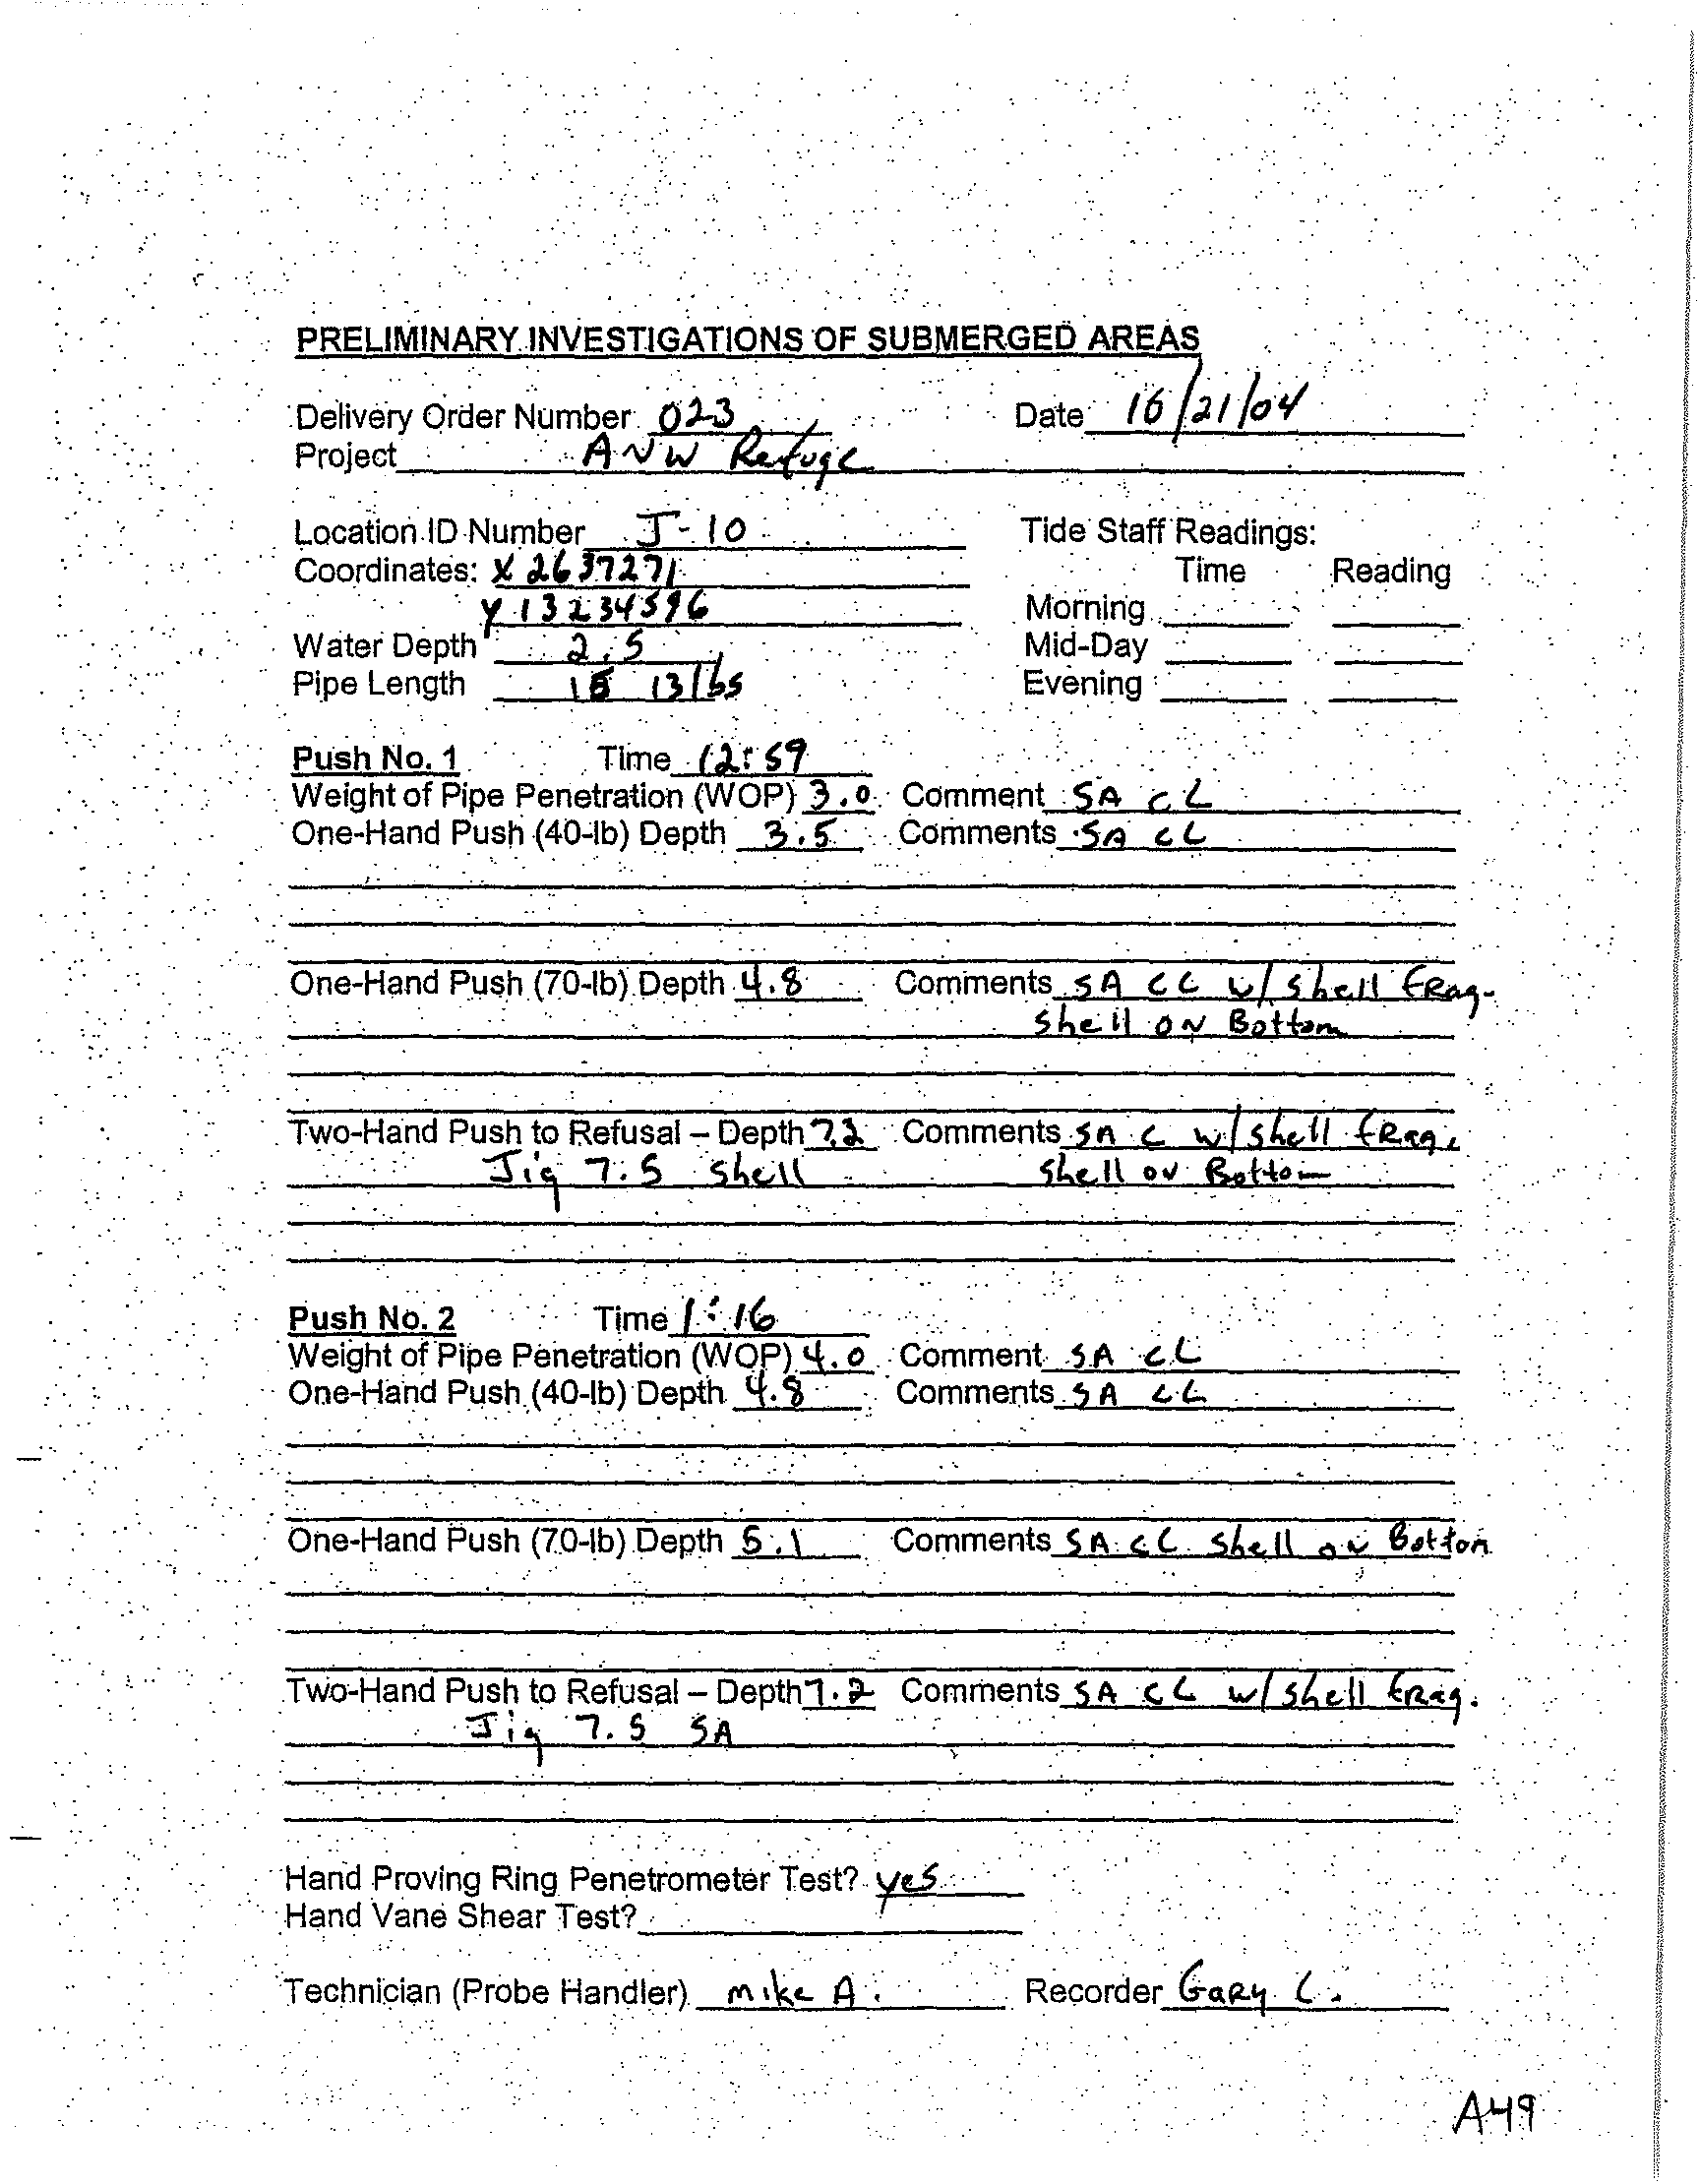 PRELIMINARY INVESTIGATIONS OF SUBMERGED AREAS
Delivery Order Number 023 Date 10/21/04
Project ANW Refuge
Location ID Number J-10 Tide Staff Readings:
Coordinates: X 2637271 Time Reading
Y 13234596 Morning
Water Depth 2.5 Mid-Day
Pipe Length 13 lbs Evening
Push No. 1 Time 12:59
Weight of Pipe Penetration (WOP) 3.0 Comment SA CL
One-Hand Push (40-lb) Depth 3.5 Comments SA CL
One-Hand Push (70-lb) Depth 4.8 Comments SA CL w/ shell FRag.
shell ON Bottom
Two-Hand Push to Refusal – Depth 7.2 Comments SA C w/ shell fRag.
Jig 7.5 shell shell on Bottom
Push No. 2 Time 1:16
Weight of Pipe Penetration (WOP) 4.0 Comment SA CL
One-Hand Push (40-lb) Depth 4.8 Comments SA CL
One-Hand Push (70-lb) Depth 5.1 Comments SA CL shell on Bottom
Two-Hand Push to Refusal – Depth 7.2 Comments SA CL w/ shell fRag.
Jig 7.5 SA
Hand Proving Ring Penetrometer Test? yes
Hand Vane Shear Test?
Technician (Probe Handler) mike A. Recorder GaRy C.
A49